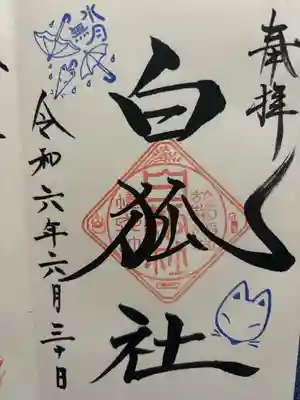 奉拝
白狐社
水無月
令和六年六月三十日